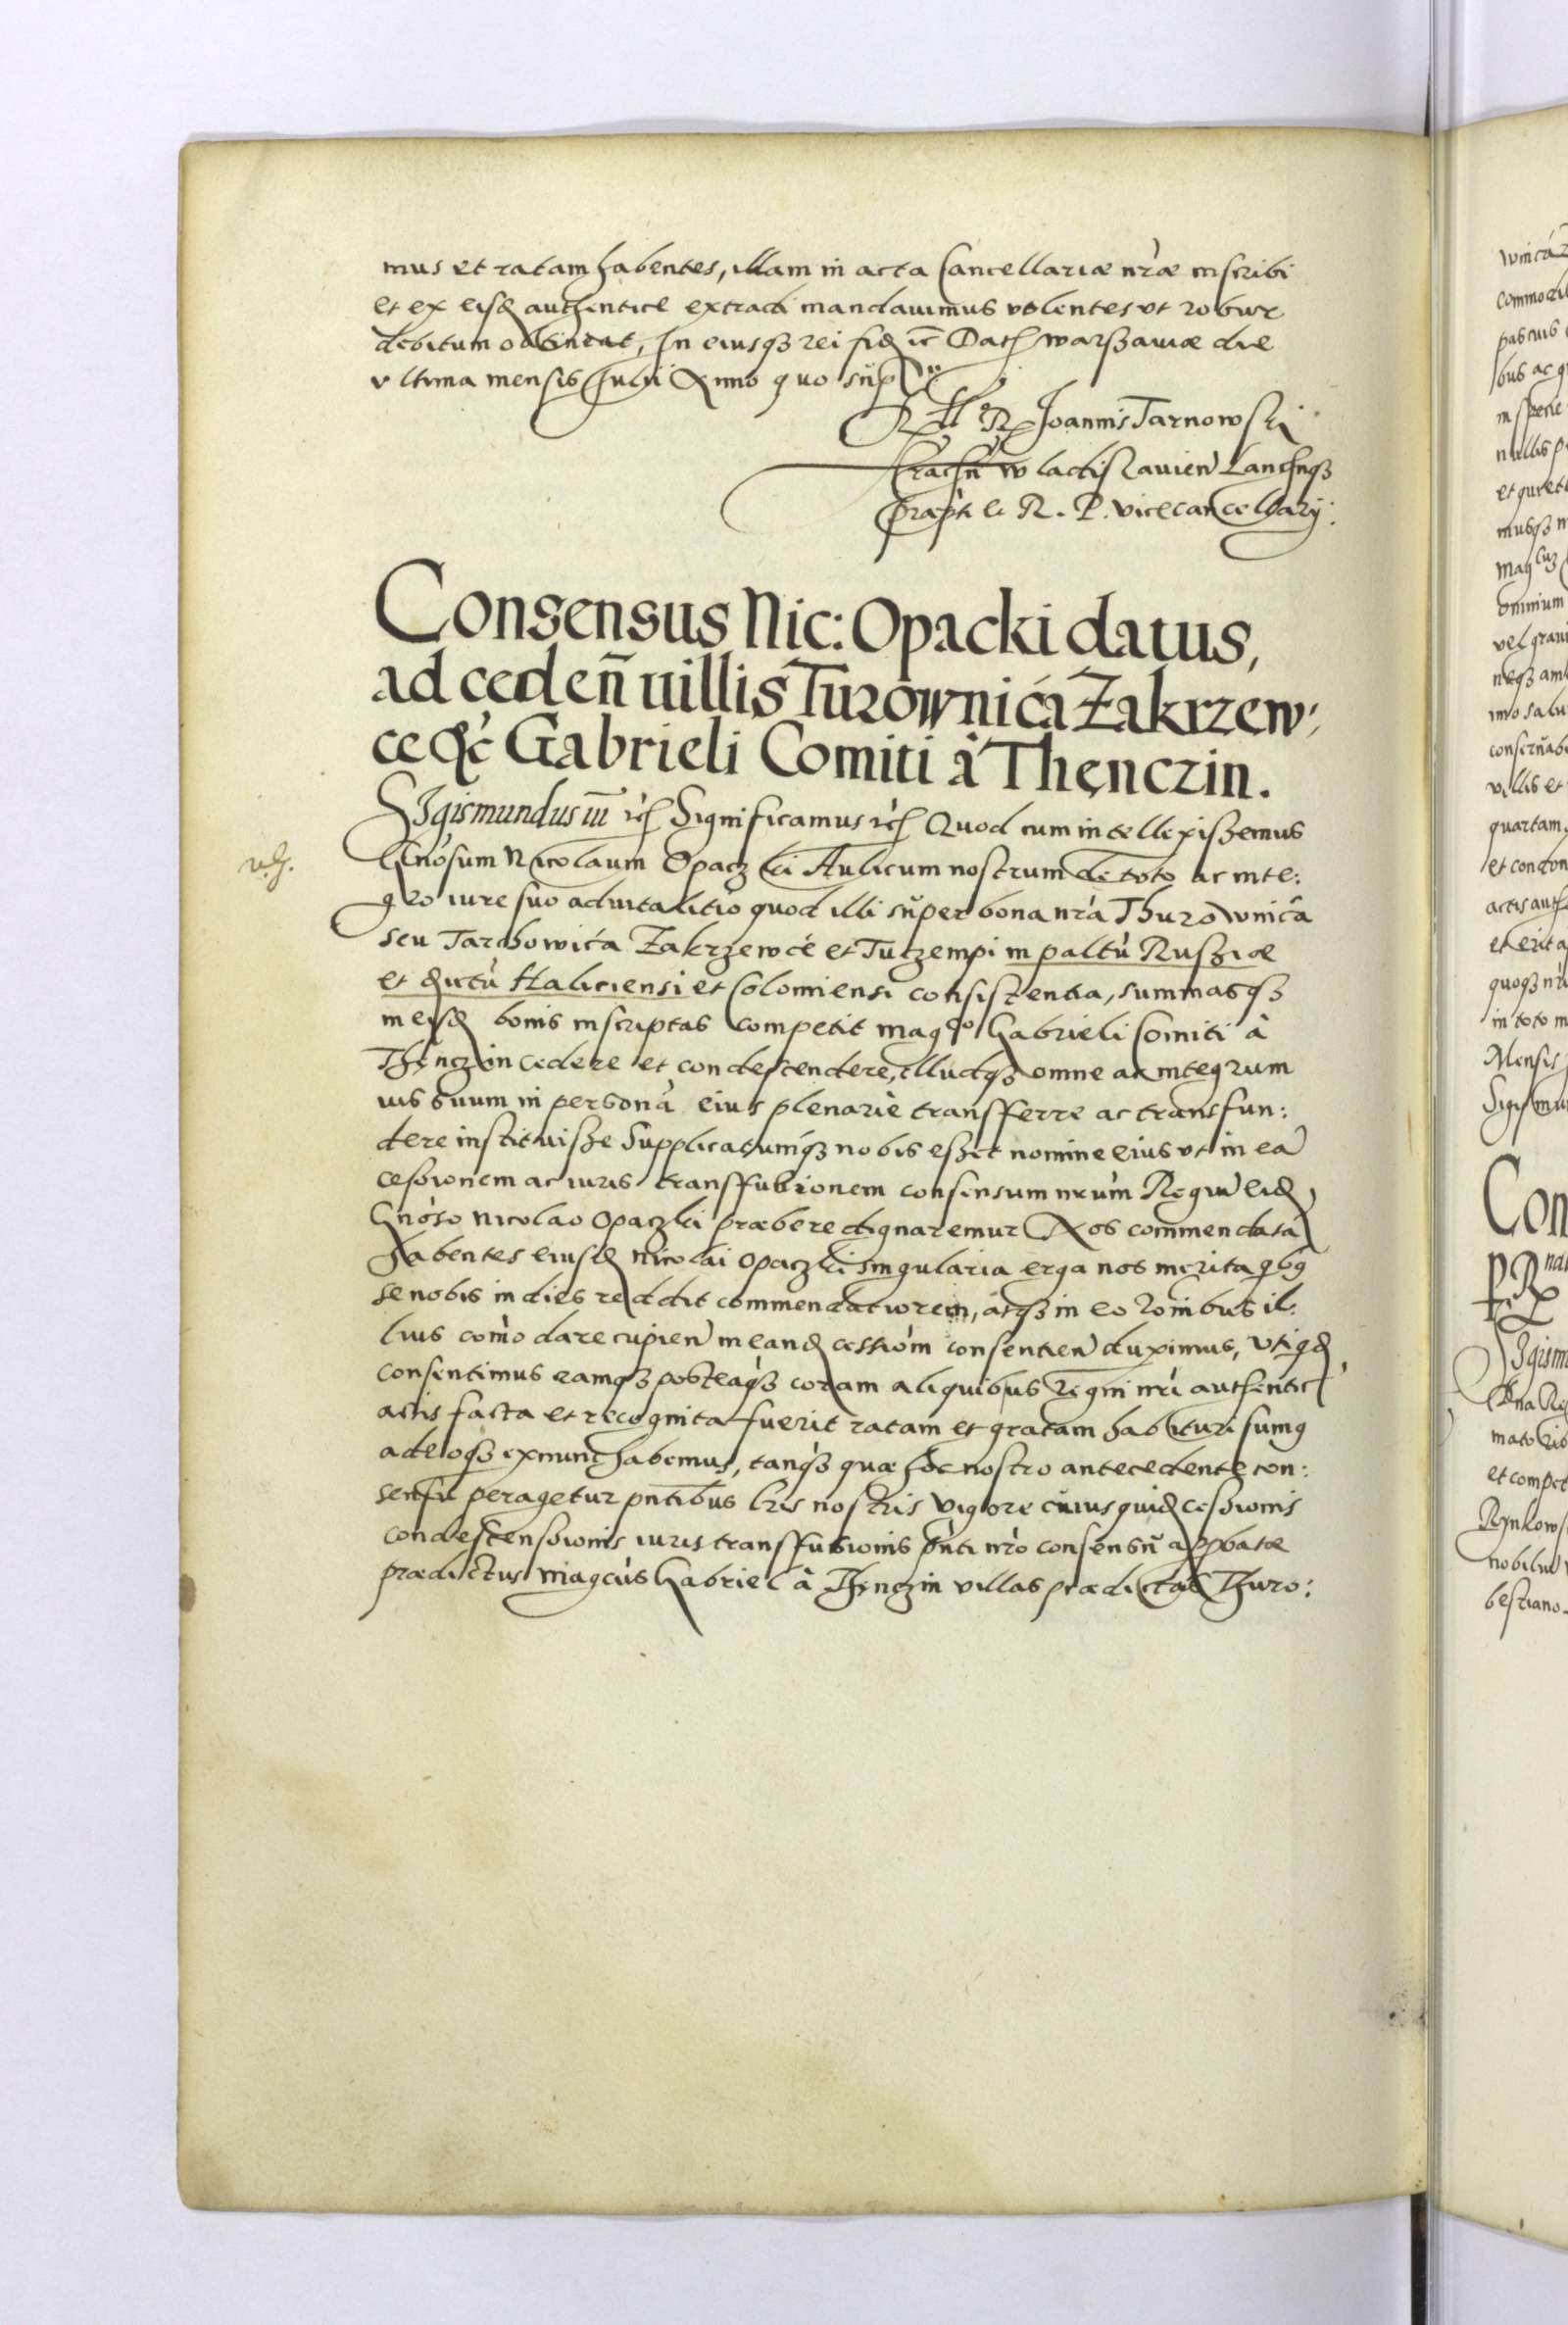 mus et ratam habentes, illam in acta Cancellariæ nræ inscribi
et ex eisd authentice extradi mandauimus volentes vt robur
debitum obtineat, In eiusqʒ rei fid ic Dat warßauiæ die
vltima mensis Iulij Anno quo sup
Rtl R P Joannis Tarnowski
Crac wladislauien Lancqʒ
Præpti R. P. vicecancellarij.
Consensus Nic: Opacki datus,
ad ceden uillis Turownica Zakrzew,
ce Gabrieli Comiti à Thenczin.
SIgismundus iii Significamus Quod cum intellexißemus
v.
Gnosum Nicolaum Opaczki Aulicum nostrum de toto ac inte:
gro iure suo aduitalitio quod illi super bona nra Thurownica
seu Tarchowica Zakrzewce et Tuczempi in paltu Rußiæ
et Haliciensi et Colomiensi consistentia, summasqʒ
in eisd bonis inscriptas competit magco Gabrieli Comiti à
Thenczin cedere et condescendere, illudqʒ omne ac integrum
ius suum in persona eius plenarie transferre ac transfun:
dere instituiße Supplicatumqʒ nobis eßet nomine eius vt in ea
cessionem ac iuris transfusionem consensum nrum Regiu eid
Gnoso Nicolao Opaczki præbere dignaremur Nos commendata
habentes eiusd Nicolai Opaczki singularia erga nos merita qbg
se nobis in dies reddit commendatiorem, atqʒ in eo omnibus il:
lius como dare cupien in eand cessiom consentien duximus, vtiqd
consentimus eamqʒ posteaqʒ coram aliquibus Regni nri authentic
actis facta et recognita fuerit ratam et gratam habituri sumg
adeoqʒ exnunc habemus, tanqʒ quæ hoc nostro antecedente con:
sensu peragetur pntibus lris nostris vigore cuiusquid cessionis
condescensionis iuris transfusionis pnti nro consensu appbatæ
prædictus magcus Gabriel à Thenczin villas prædictas Thuro: